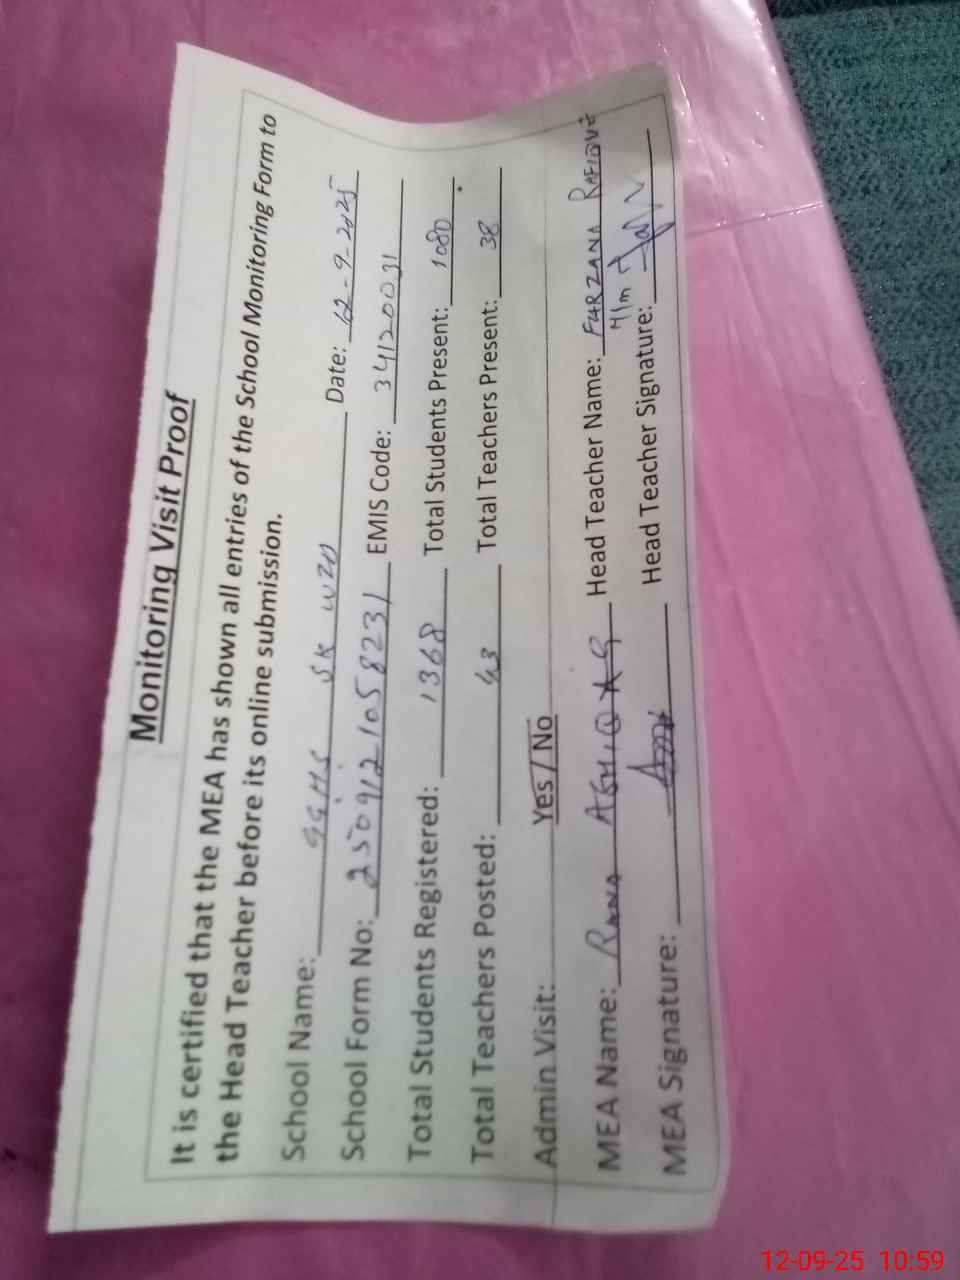 Monitoring Visit Proof
It is certified that the MEA has shown all entries of the School Monitoring Form to
the Head Teacher before its online submission.
School Name: GGHS SK WZD Date: 12-9-2025
School Form No: 250912105823/ EMIS Code: 34120031
Total Students Registered: 1368 Total Students Present: 1080
Total Teachers Posted: 43 Total Teachers Present: 38
Admin Visit: Yes / No
MEA Name: RANA ASHIQ Head Teacher Name: FARZANA RAFIQUE
H/m
MEA Signature: Head Teacher Signature:
12-09-25 10:59